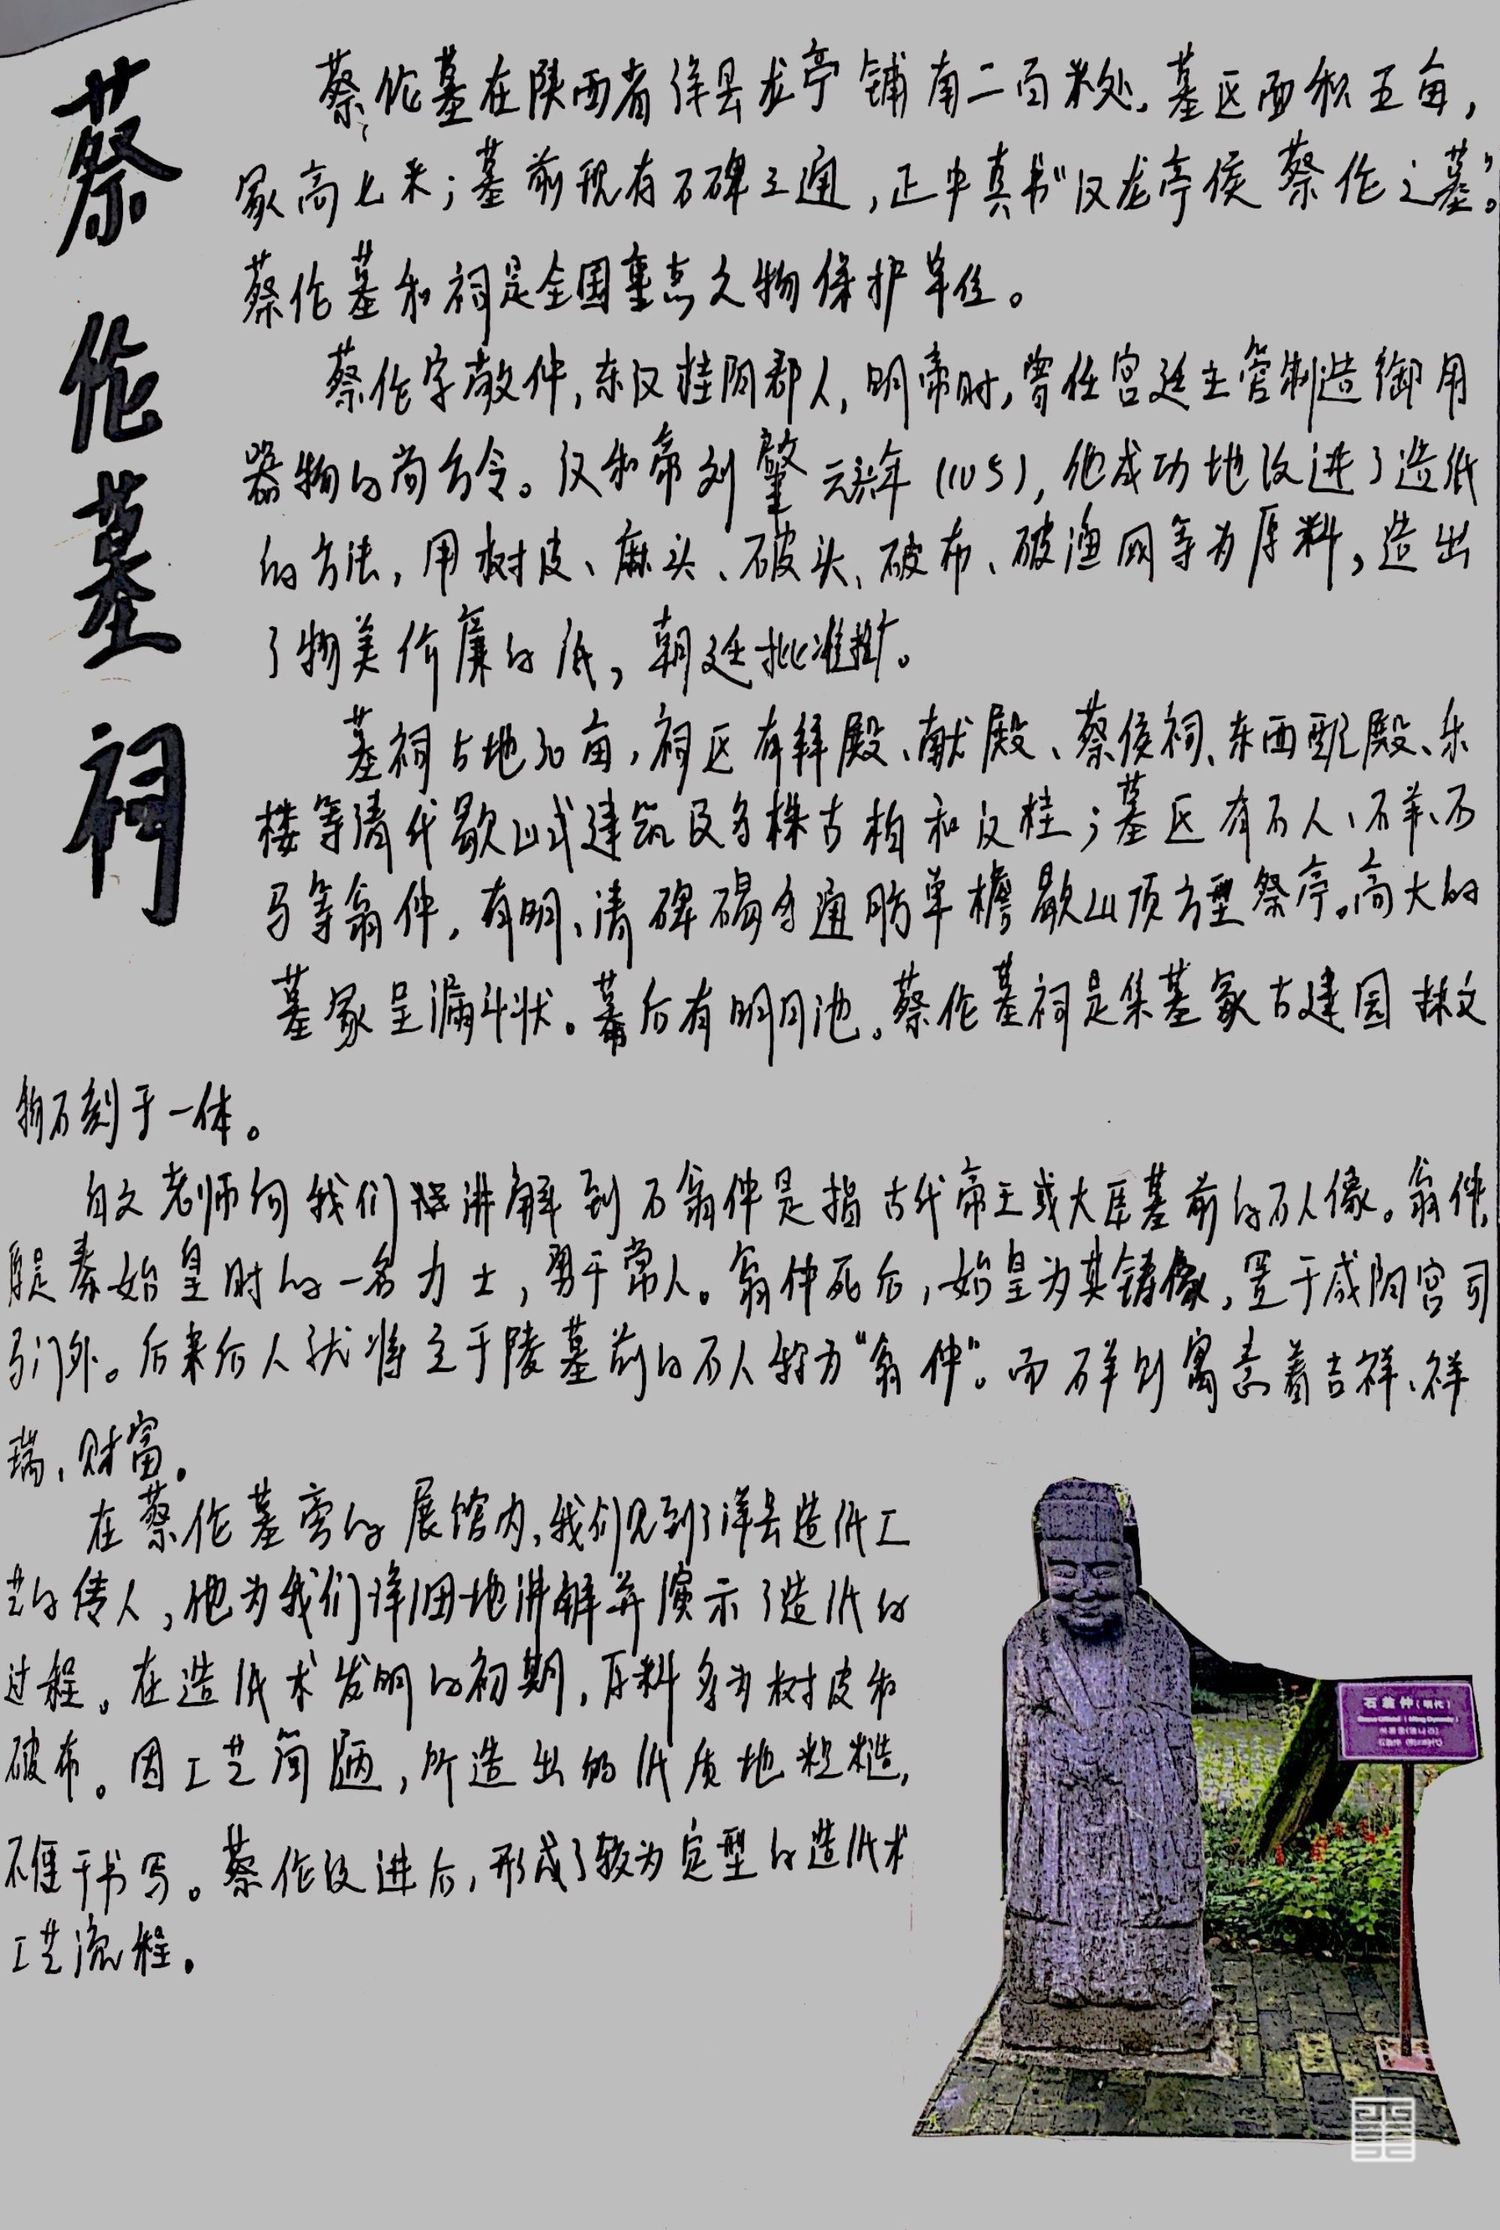 蔡伦墓祠
蔡伦墓在陕西省洋县龙亭铺南二百米处，墓区面积五亩，
冢高七米；墓前现有石碑三通，正中真书“汉龙亭侯蔡伦之墓”。
蔡伦墓和祠是全国重点文物保护单位。
蔡伦字敬仲，东汉桂阳郡人，明帝时，曾任宫廷主管制造御用
器物的尚方令。汉和帝刘肇元兴年(105)，他成功地改进了造纸
的方法，用树皮、麻头、破头、破布、破渔网等为原料，造出
了物美价廉的纸，朝廷批准推广。
墓祠占地30亩，祠区有拜殿、献殿、蔡侯祠、东西配殿、乐
楼等清代歇山式建筑及多株古柏和汉桂；墓区有石人、石羊、石
马等翁仲，有明、清碑碣多通 单檐歇山顶方型祭亭。高大的
墓冢呈漏斗状。墓后有明月池。蔡伦墓祠是集墓冢古建园林文
物石刻于一体。
老师向我们讲解到石翁仲是指古代帝王或大臣墓前的石人像。翁仲，
原是秦始皇时的一名力士，勇于常人。翁仲死后，始皇为其铸像，置于咸阳宫司
马门外。后来后人就将立于陵墓前的石人称为“翁仲”。而石羊则寓意着吉祥、祥
瑞、财富。
在蔡伦墓旁的展馆内，我们见到了洋县造纸工
艺的传人，他为我们详细地讲解并演示了造纸的
过程。在造纸术发明的初期，原料多为树皮和
破布。因工艺简陋，所造出的纸质地粗糙，
不便于书写。蔡伦改进后，形成了较为定型的造纸术
工艺流程。
石翁仲（明代）